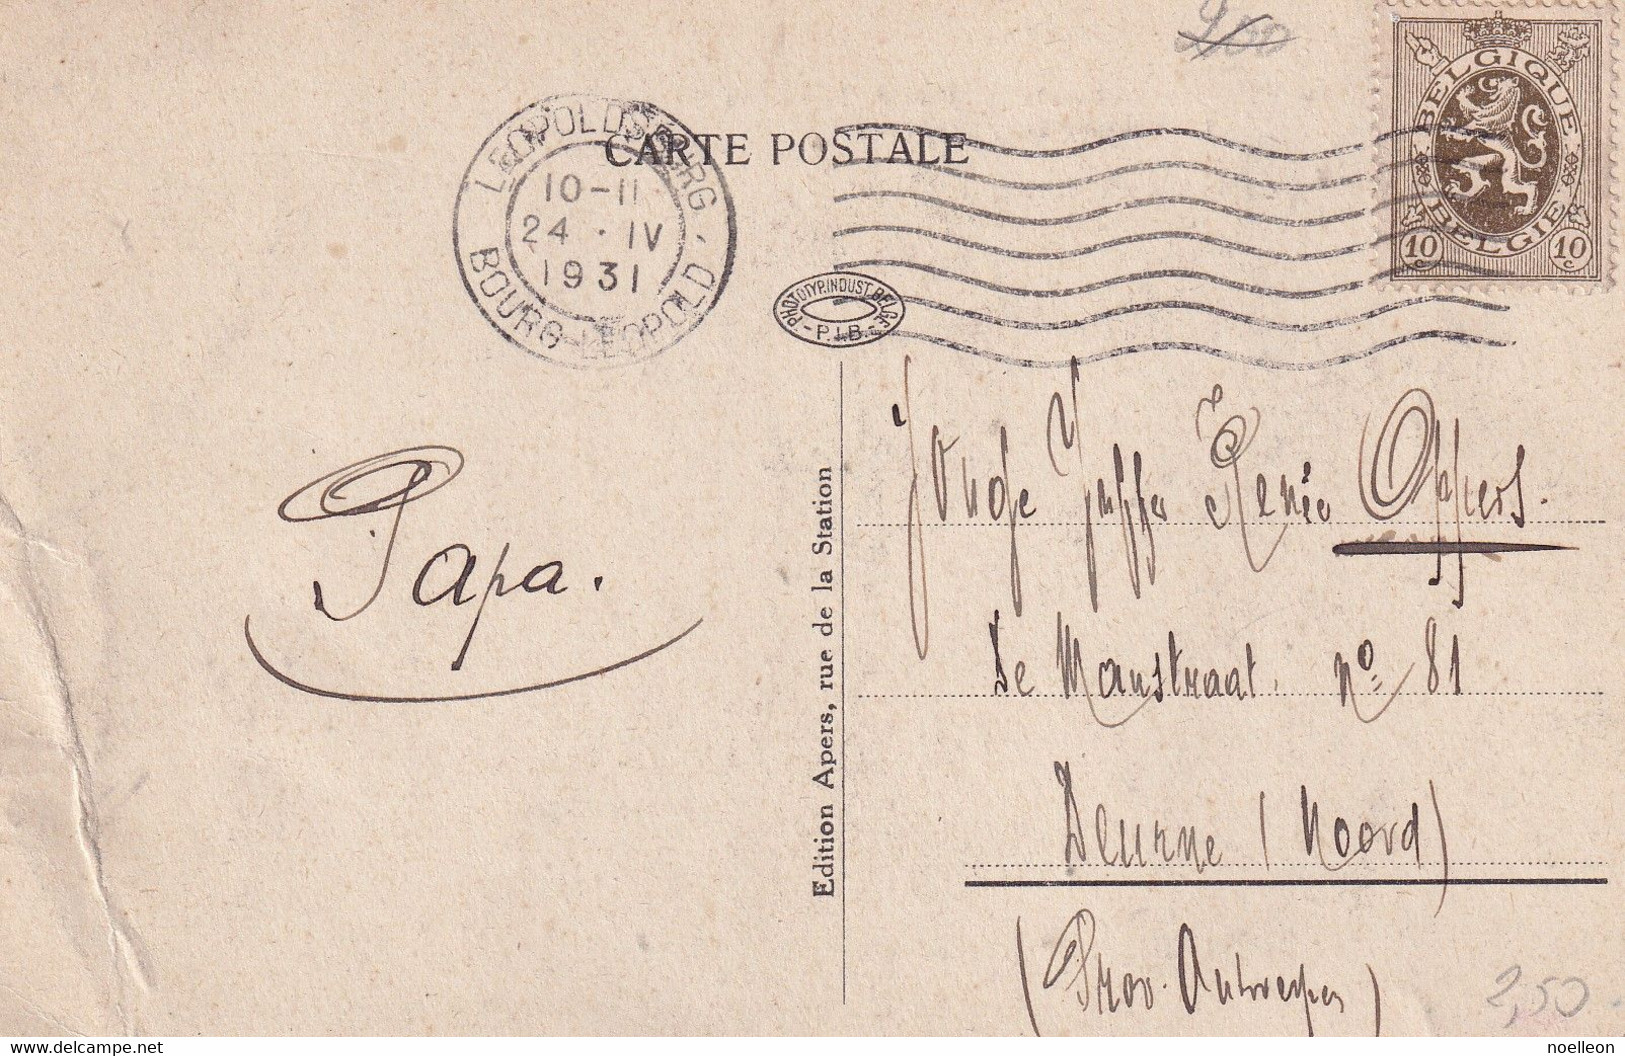 2,00
CARTE POSTALE
LEOPOLDSBURG
10-11
24 · IV
1931
BOURG-LEOPOLD
BELGIQUE
BELGIE
10 c
10 c
PHOTOTYP. INDUST. BELGE
- P.I.B. -
Papa.
Edition Apers, rue de la Station
Jonge Juffer Renée Oppers.
De Manstraat. No 81
Deurne (Noord)
(Prov. Antwerpen)
2,50
Delcampe.net
noelleon